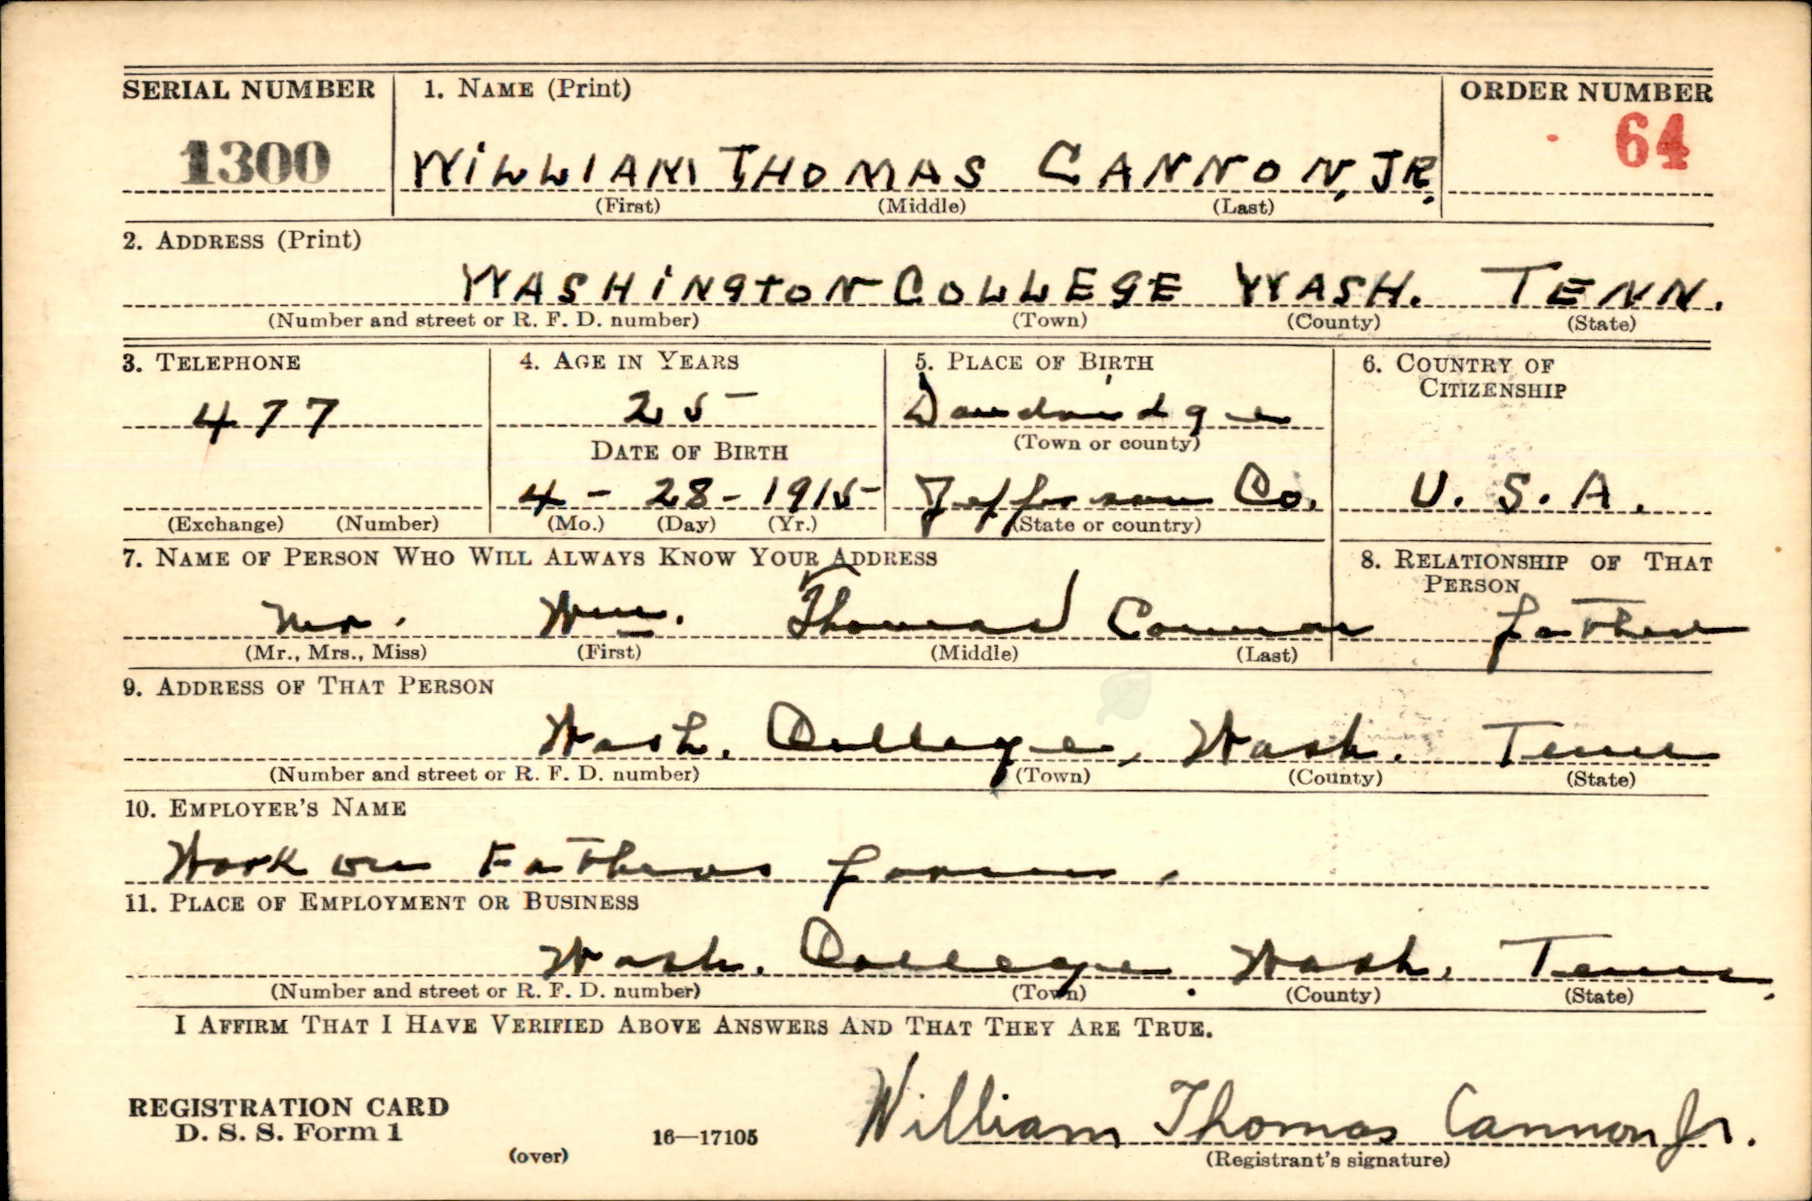 SERIAL NUMBER 1. NAME (Print) ORDER NUMBER
1300 WILLIAM THOMAS CANNON, JR. 64
(First) (Middle) (Last)
2. ADDRESS (Print)
WASHINGTON COLLEGE WASH. TENN.
(Number and street or R. F. D. number) (Town) (County) (State)
3. TELEPHONE 4. AGE IN YEARS 5. PLACE OF BIRTH 6. COUNTRY OF CITIZENSHIP
477 25 Dandridge
DATE OF BIRTH (Town or county)
4 - 28 - 1915 Jefferson Co. U. S. A.
(Exchange) (Number) (Mo.) (Day) (Yr.) (State or country)
7. NAME OF PERSON WHO WILL ALWAYS KNOW YOUR ADDRESS 8. RELATIONSHIP OF THAT PERSON
Mr. Wm. Thomas Cannon father
(Mr., Mrs., Miss) (First) (Middle) (Last)
9. ADDRESS OF THAT PERSON
Wash. College, Wash. Tenn
(Number and street or R. F. D. number) (Town) (County) (State)
10. EMPLOYER'S NAME
Work on Fathers farm.
11. PLACE OF EMPLOYMENT OR BUSINESS
Wash. College. Wash. Tenn.
(Number and street or R. F. D. number) (Town) (County) (State)
I AFFIRM THAT I HAVE VERIFIED ABOVE ANSWERS AND THAT THEY ARE TRUE.
REGISTRATION CARD
D. S. S. Form 1 William Thomas Cannon Jr.
(over) 16—17105 (Registrant's signature)